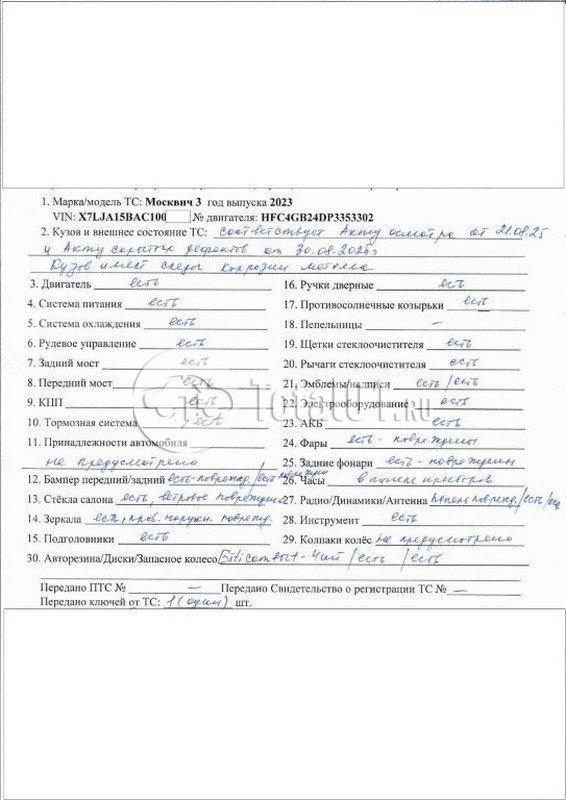 1. Марка/модель ТС: Москвич 3 год выпуска 2023
VIN: X7LJA15BAC100 № двигателя: HFC4GB24DP3353302
2. Кузов и внешнее состояние ТС: соответствует Акту осмотра от 21.08.25
и Акту скрытых дефектов от 30.08.2025г
Кузов имеет следы коррозии металла
3. Двигатель есть
4. Система питания есть
5. Система охлаждения есть
6. Рулевое управление есть
7. Задний мост есть
8. Передний мост есть
9. КПП есть
10. Тормозная система есть
11. Принадлежности автомобиля
не предусмотрено
12. Бампер передний/задний есть-поврежд./есть поврежден
13. Стёкла салона есть, ветровое повреждено
14. Зеркала есть, прав. наружн. поврежд.
15. Подголовники есть
16. Ручки дверные есть
17. Противосолнечные козырьки есть
18. Пепельницы –
19. Щетки стеклоочистителя есть
20. Рычаги стеклоочистителя есть
21. Эмблемы/надписи есть/есть
22. Электрооборудование есть
23. АКБ есть
24. Фары есть - повреждены
25. Задние фонари есть - повреждены
26. Часы в панели приборов
27. Радио/Динамики/Антенна поврежд./есть/есть
28. Инструмент есть
29. Колпаки колёс не предусмотрено
30. Авторезина/Диски/Запасное колесо - 4шт /есть /есть
Передано ПТС № – Передано Свидетельство о регистрации ТС № –
Передано ключей от ТС: 1 (один) шт.
Total01.RU